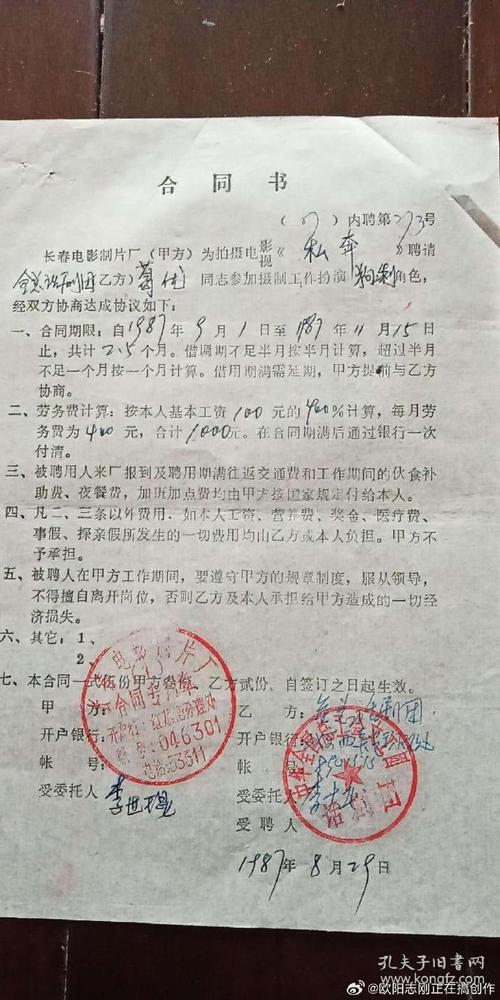 合同书
(87)内聘第273号
长春电影制片厂(甲方)为拍摄电影视《私奔》聘请
全总话剧团(乙方)葛优同志参加摄制工作扮演狗剩角色,
经双方协商达成协议如下:
一、合同期限:自1987年9月1日至1987年11月15日
止,共计2.5个月。借调期不足半月按半月计算,超过半月
不足一个月按一个月计算。借用期满需延期,甲方提前与乙方
协商。
二、劳务费计算:按本人基本工资100元的400%计算,每月劳
务费为400元,合计1000元。在合同期满后通过银行一次
付清。
三、被聘用人来厂报到及聘用期满往返交通费和工作期间的伙食补
助费、夜餐费,加班加点费均由甲方按国家规定付给本人。
四、凡二、三条以外费用.如本人工资、营养费、奖金、医疗费、
事假、探亲假所发生的一切费用均由乙方或本人负担。甲方不
予承担。
五、被聘人在甲方工作期间,要遵守甲方的规章制度,服从领导,
不得擅自离开岗位,否则乙方及本人承担给甲方造成的一切经
济损失。
六、其它:1、
2、
七、本合同一式伍份甲方叁份,乙方贰份,自签订之日起生效。
甲方:
乙方:全总话剧团
开户银行:
开户银行:
帐号:
帐号:
受委托人
受委托人
李世
受聘人
1987年8月29日
电影制片厂
合同专用章
046301
电话53511
话剧团
孔夫子旧书网
kongfz.com
@欧阳志刚正在搞创作